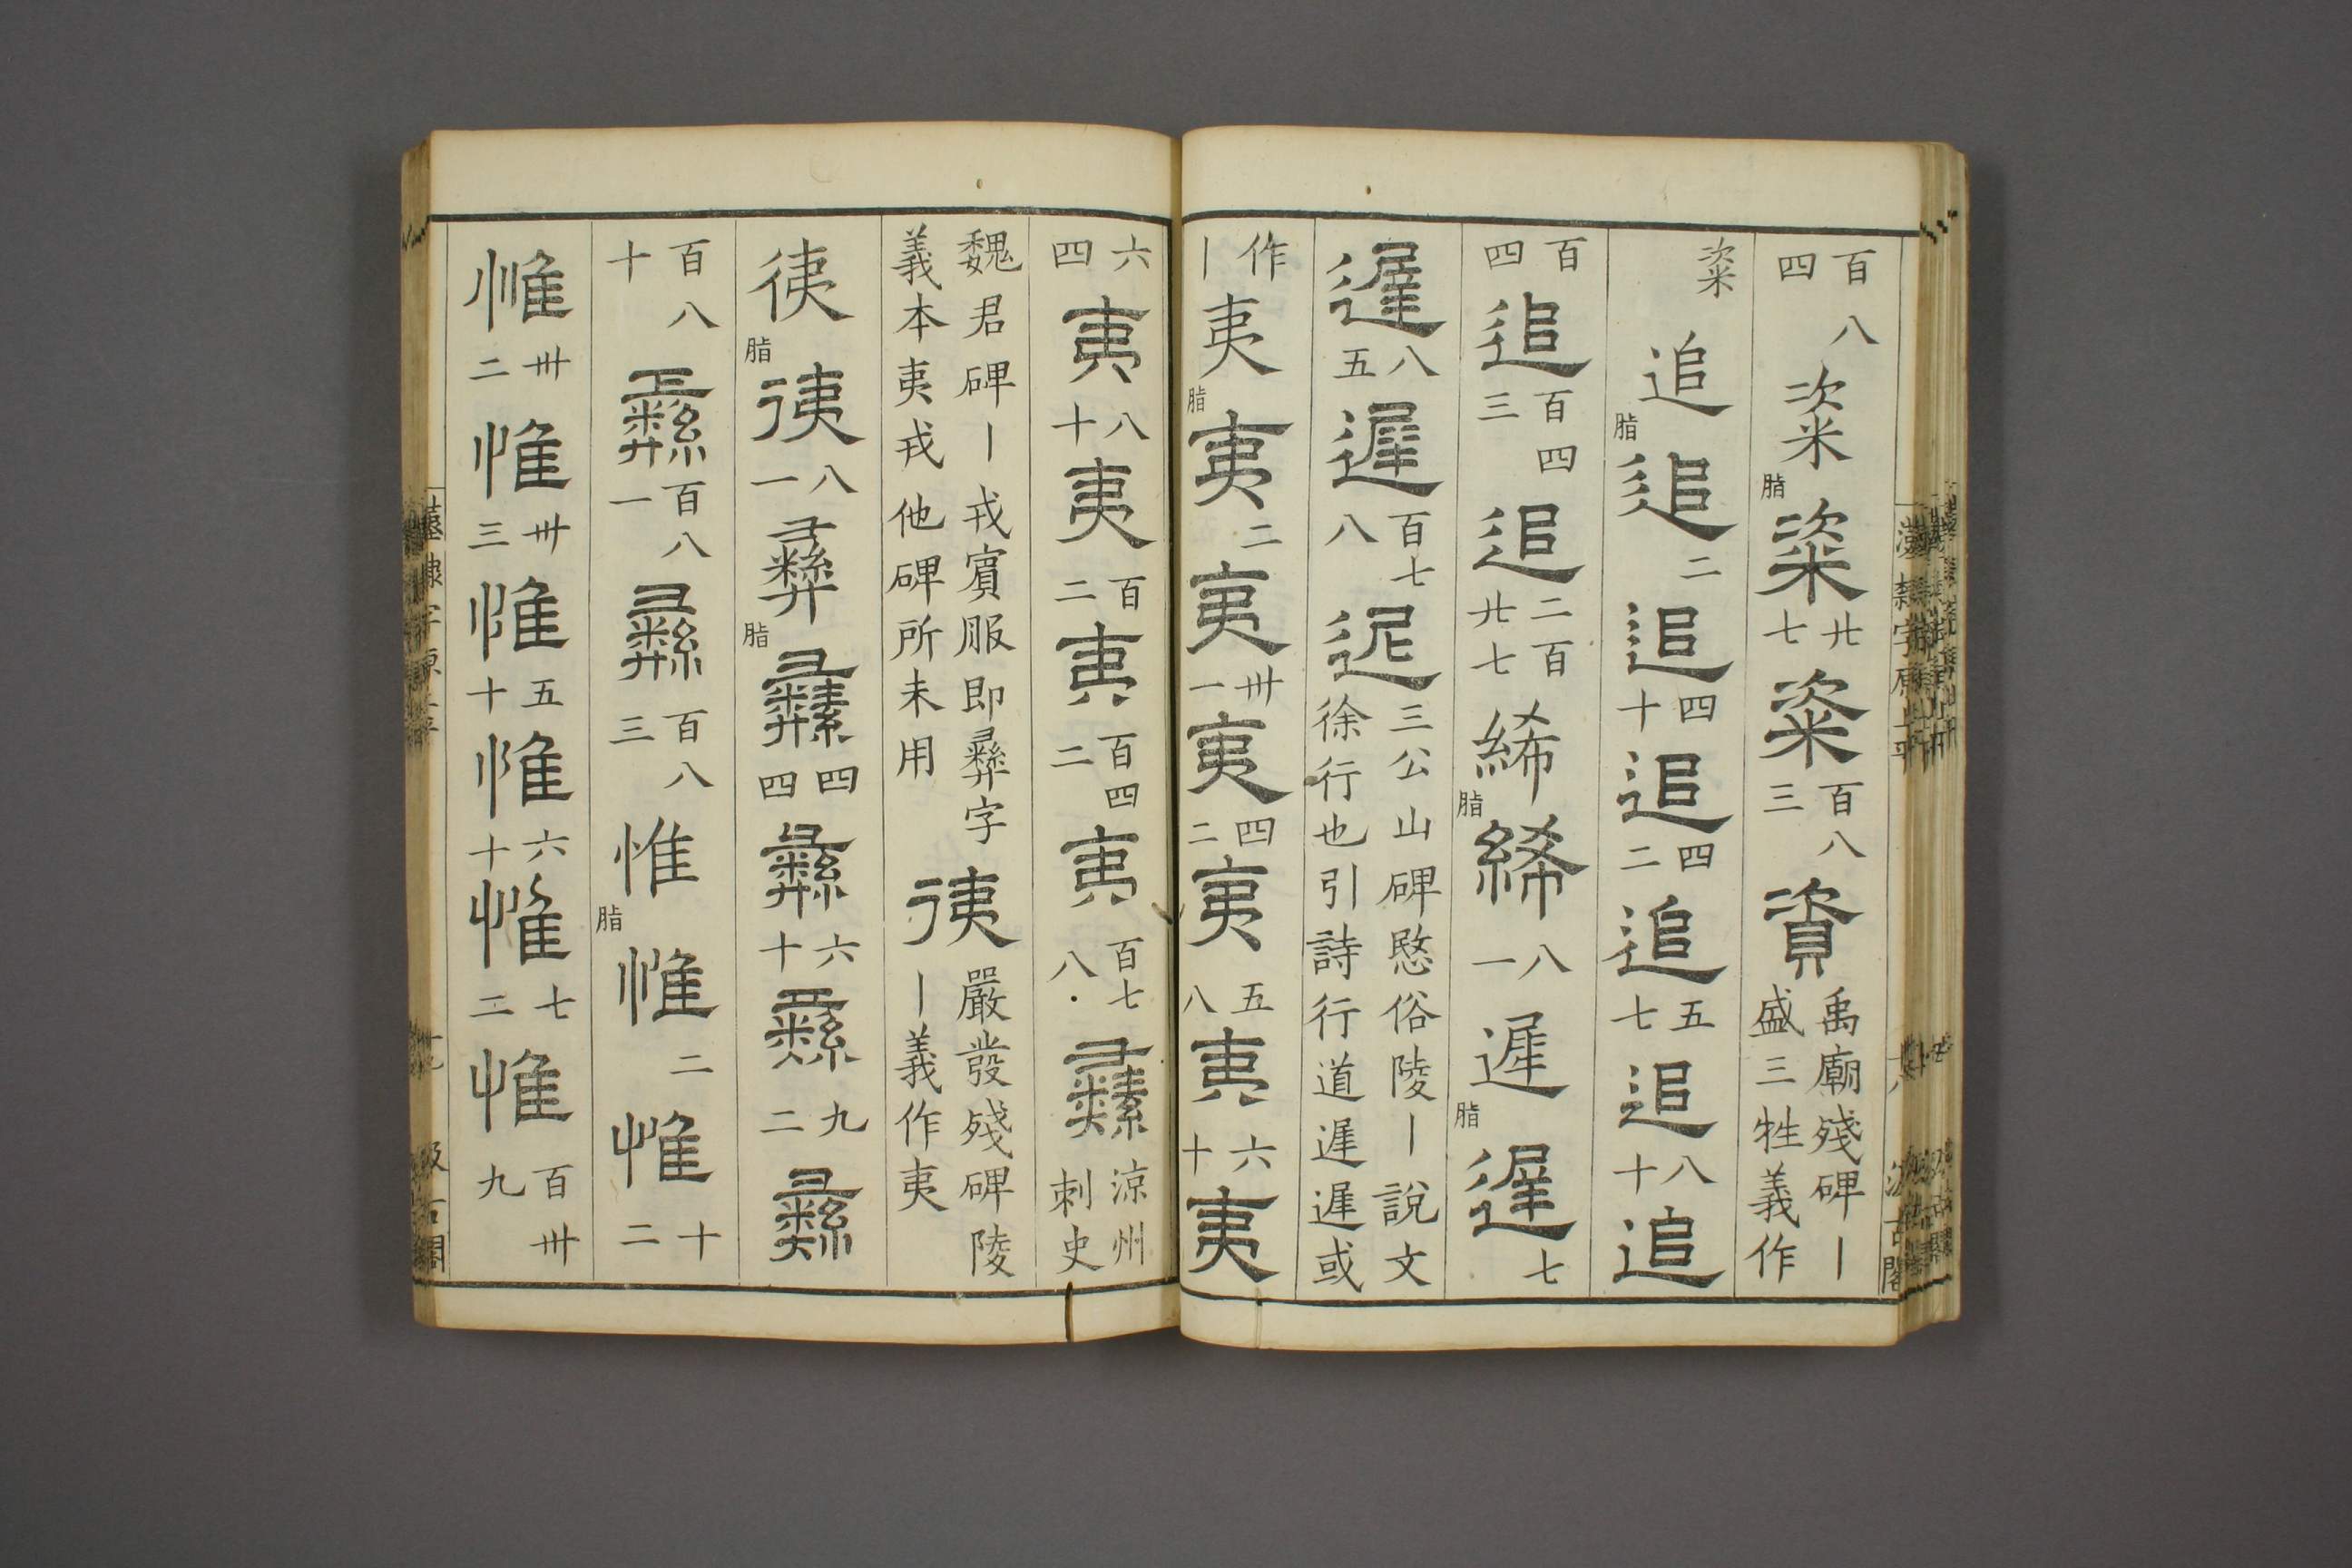 百八四 粢 脂 粢 廿七 粢 百八三 資 禹廟殘碑丨盛三牲義作
粢 追 脂 追 二 追 四十 追 四二 追 五七 追 八十 追
百四 追 百四三 追 二百廿七 絺 脂 絺 八一 遲 脂 遲 七
遲 八五 遲 百七八 迡 三公山碑愍俗陵丨說文徐行也引詩行道遲遲或
作丨 夷 脂 夷 二 夷 卅一 夷 四二 夷 五八 夷 六十 夷
六四 夷 八十 夷 百二 夷 百四二 夷 百七八 彞 涼州刺史
魏君碑丨戎賓服即彞字義本夷戎他碑所未用 徚 嚴發殘碑陵丨義作夷
徚 脂 徚 八一 彞 脂 彞 四四 彞 六十 彞 九二 彞
百八十 彞 百八一 彞 百八三 惟 脂 惟 二 惟 十二
惟 卅二 惟 卅三 惟 五十 惟 六十 惟 七二 惟 百卅九
漢隸字原 上平 十八 汲古閣